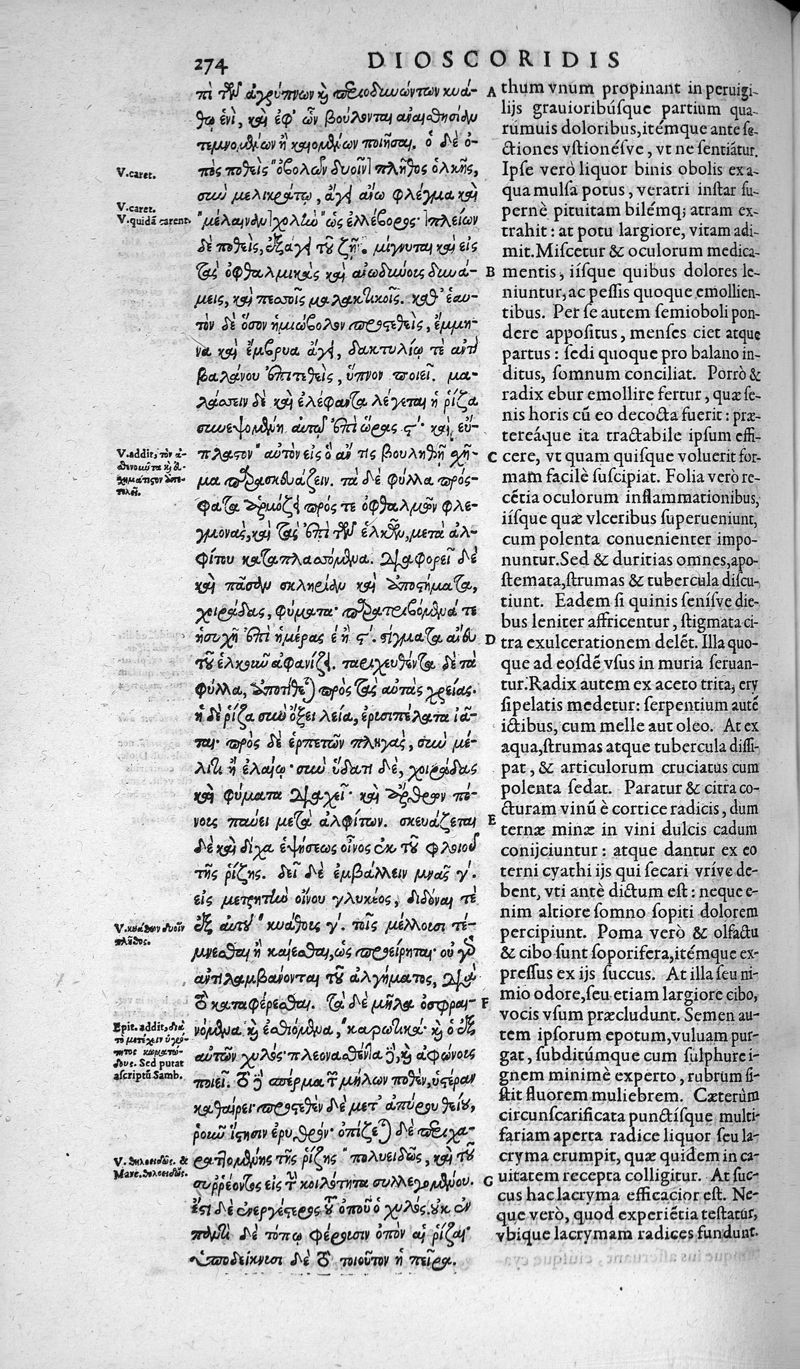 274
DIOSCORIDIS
πὶ τῶν ἀγρύπνων καὶ περιοδυνώντων κυά-
θῳ ἑνὶ, καὶ ἐφ' ὧν βούλονται ἀναισθησίαν
τεμνομένων ἢ καιομένων ποιῆσαι. ὁ δὲ ὀ-
πὸς ποθεὶς ὀβολῶν δυοῖν] πλῆθος ὁλκῆς,
σὺν μελικράτῳ, ἄγει ἄνω φλέγμα καὶ
"μέλαιναν] χολὴν "ὡς ἐλλέβορος· ]πλείων
δὲ ποθεὶς, ἐξάγει τοῦ ζῆν. μίγνυται καὶ εἰς
τὰς ὀφθαλμικὰς καὶ ἀνωδύνοις δυνά-
μεις, καὶ πεσσοῖς μαλακτικοῖς. καθ' ἑαυ-
τὸν δὲ ὅσον ἡμιώβολον προστεθεὶς, ἔμμη-
να καὶ ἔμβρυα ἄγει, δακτυλίῳ τε ἀντὶ
βαλάνου ἐπιτεθεὶς, ὕπνον ποιεῖ. μα-
λάσσειν δὲ καὶ ἐλέφαντα λέγεται ἡ ῥίζα
συνεψομένη αὐτῷ ἐπὶ ὥρας ϛ'. καὶ εὔ-
πλαστον" αὐτὸν εἰς ὃ ἄν τις βουληθῇ σχῆ-
μα παρασκευάζειν. τὰ δὲ φύλλα πρόσ-
φατα ἁρμόζει πρός τε ὀφθαλμῶν φλε-
γμονὰς, καὶ τὰς ἐπὶ τῶν ἑλκῶν, μετὰ ἀλ-
φίτου καταπλασσόμενα. διαφορεῖ δὲ
καὶ πᾶσαν σκληρίαν καὶ ἀποστήματα,
χοιράδας, φύματα· παρατριβόμενά τε
ἡσυχῆ ἐπὶ ἡμέρας ε ἢ ϛ'. στίγματα ἄνευ
τοῦ ἑλκοῦν ἀφανίζει. ταριχευθέντα δὲ τὰ
φύλλα, ἀποτίθεται πρὸς τὰς αὐτὰς χρείας.
ἡ δὲ ῥίζα σὺν ὄξει λεία, ἐρισιπέλατα ἰᾶ-
ται· πρὸς δὲ ἑρπετῶν πληγὰς, σὺν μέ-
λιτι ἢ ἐλαίῳ· σὺν ὕδατι δὲ, χοιράδας
καὶ φύματα διαχεῖ· καὶ ἄρθρων πό-
νοις παύει μετὰ ἀλφίτων. σκευάζεται
δὲ καὶ δίχα ἑψήσεως οἶνος ἐκ τοῦ φλοιοῦ
τῆς ῥίζης. δεῖ δὲ ἐμβάλλειν μνᾶς γ'.
εἰς μετρητὴν οἴνου γλυκέος, διδόναι τὲ
ἐξ αὐτοῦ "κυάθοις γ'. τοῖς μέλλουσι τέ-
μνεσθαι ἢ καίεσθαι, ὡς προείρηται· οὐ γὰρ
ἀντιλαμβάνονται τοῦ ἀλγήματος, διὰ
τὸ καταφέρεσθαι. τὰ δὲ μῆλα ὀσφραι-
νόμενα καὶ ἐσθιόμενα, "καρωτικά· καὶ ὁ ἐξ
αὐτῶν χυλός· πλεονασθέντα δὲ, καὶ ἀφώνους
ποιεῖ. τὸ δὲ σπέρμα τῶν μήλων ποθὲν, ὑστέραν
καθαίρει· προστεθὲν δὲ μετ' ἀπύρου θείου,
ῥοῦν ἵστησιν ἐρυθρόν· ὀπίζεται δὲ περιχα-
ραττομένης τῆς ῥίζης "πολυειδῶς, καὶ τοῦ
συρρέοντος εἰς τὴν κοιλότητα συλλεγομένου.
ἔστι δὲ ἐνεργέστερος τοῦ ὀποῦ ὁ χυλός. οὐκ ἐν
παντὶ δὲ τόπῳ φέρουσιν ὀπὸν αἱ ῥίζαι·
ὑποδείκνυσι δὲ τὸ τοιοῦτον ἡ πεῖρα.
V. caret.
V. caret.
V. quidā carent.
V. addit, τὸν ἀ-
V. κυάθων δυοῖν
πλῆθος.
Epit. addit, διὰ
τὸ μετέχειν ὑγρό-
τητος
Sed putat
ascriptū Samb.
V. &
Marc.
A
B
C
D
E
F
G
thum vnum propinant in peruigi-
lijs grauioribúsque partium qua-
rumuis doloribus, itémque ante se-
ctiones vstionésve, vt ne sentiātur.
Ipse verò liquor binis obolis ex a-
qua mulsa potus, veratri instar su-
pernè pituitam bilémq; atram ex-
trahit: at potu largiore, vitam adi-
mit. Miscetur & oculorum medica-
mentis, iísque quibus dolores le-
niuntur, ac pessis quoque emollien-
tibus. Per se autem semioboli pon-
dere appositus, menses ciet atque
partus: sedi quoque pro balano in-
ditus, somnum conciliat. Porrò &
radix ebur emollire fertur, quæ se-
nis horis cū eo decocta fuerit: præ-
tereáque ita tractabile ipsum effi-
cere, vt quam quisque voluerit for-
mam facilè suscipiat. Folia verò re-
cētia oculorum inflammationibus,
iísque quæ vlceribus superueniunt,
cum polenta conuenienter impo-
nuntur. Sed & duritias omnes, apo-
stemata, strumas & tubercula discu-
tiunt. Eadem si quinis senísve die-
bus leniter affricentur, stigmata ci-
tra exulcerationem delēt. Illa quo-
que ad eosdē vsus in muria seruan-
tur. Radix autem ex aceto trita, ery
sipelatis medetur: serpentium autē
ictibus, cum melle aut oleo. At ex
aqua, strumas atque tubercula dissi-
pat, & articulorum cruciatus cum
polenta sedat. Paratur & citra co-
cturam vinū è cortice radicis, dum
ternæ minæ in vini dulcis cadum
conijciuntur: atque dantur ex eo
terni cyathi ijs qui secari vrive de-
bent, vti antè dictum est: neque e-
nim altiore somno sopiti dolorem
percipiunt. Poma verò & olfactu
& cibo sunt soporifera, itémque ex-
pressus ex ijs succus. At illa seu ni-
mio odore, seu etiam largiore cibo,
vocis vsum præcludunt. Semen au-
tem ipsorum epotum, vuluam pur-
gat, subditúmque cum sulphure i-
gnem minimè experto, rubrum si-
stit fluorem muliebrem. Cæterùm
circunscarificata punctísque multi-
fariam aperta radice liquor seu la-
cryma erumpit, quæ quidem in ca-
uitatem recepta colligitur. At suc-
cus hac lacryma efficacior est. Ne-
que verò, quod experiētia testatur,
vbique lacrymam radices fundunt.